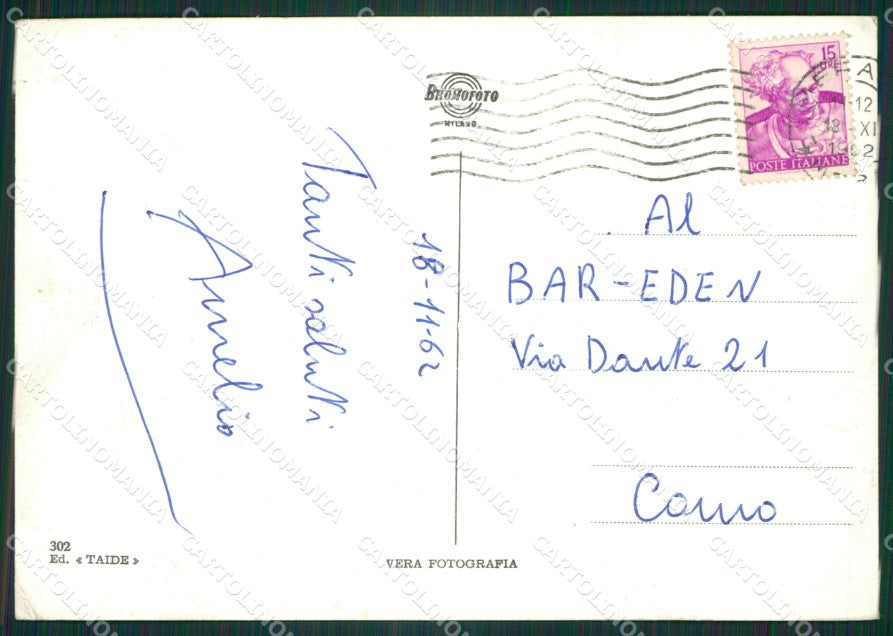 BROMOFOTO
MILANO
15
LIRE
POSTE ITALIANE
-12
18 XI
1962
Tanti saluti
Amelio
18-11-62
Al
BAR-EDEN
Via Dante 21
Como
302
Ed. « TAIDE »
VERA FOTOGRAFIA
CARTOLINOMANIA